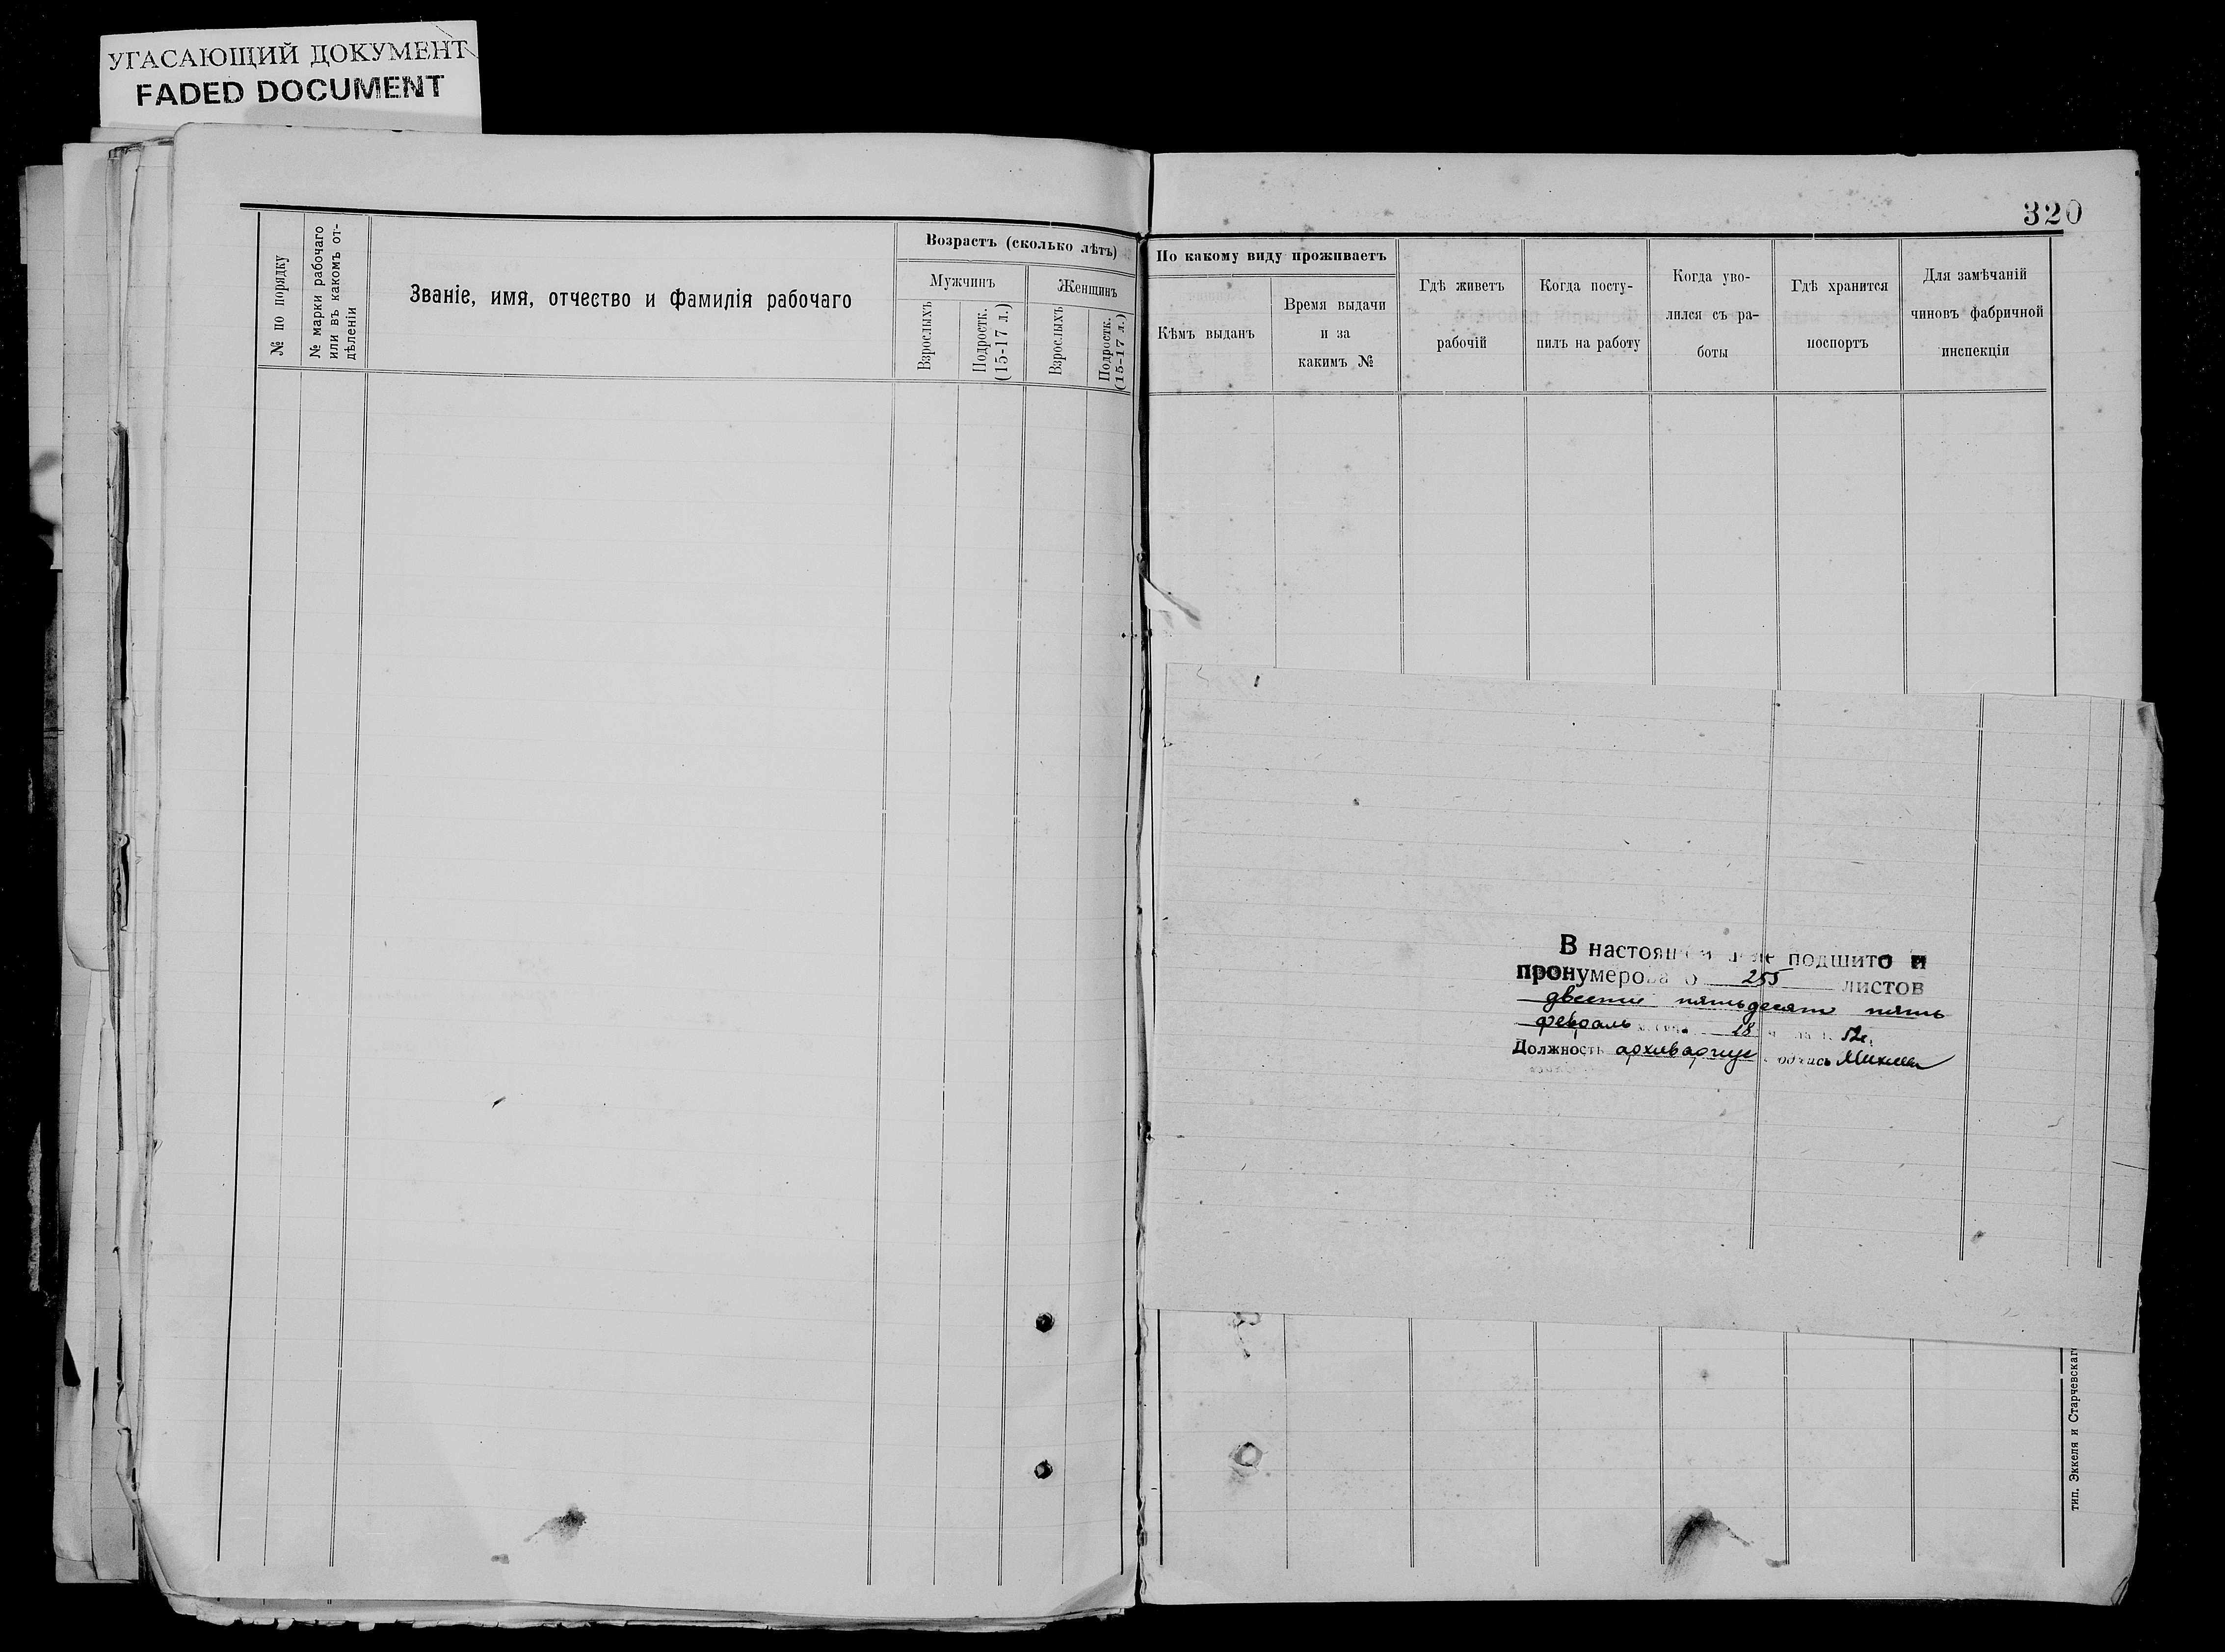 УГАСАЮЩИЙ ДОКУМЕНТ
FADED DOCUMENT
№ по порядку
№ марки рабочаго
или въ какомъ от-
дѣленіи
Званіе, имя, отчество и фамилія рабочаго
Возрастъ (сколько лѣтъ)
Мужчинъ
Женщинъ
Взрослыхъ
Подростк.
(15-17 л.)
Взрослыхъ
Подростк.
(15-17 л.)
320
По какому виду проживаетъ
Кѣмъ выданъ
Время выдачи
и за
какимъ №
Гдѣ живетъ
рабочій
Когда посту-
пилъ на работу
Когда уво-
лился съ ра-
боты
Гдѣ хранится
поспортъ
Для замѣчаній
чиновъ фабричной
инспекціи
В настоящем деле подшито и
пронумеровано 255 листов
двести пятьдесят пять
февраль 28 52г.
Должность архивариус подпись
тип. Эккеля и Старчевскаго